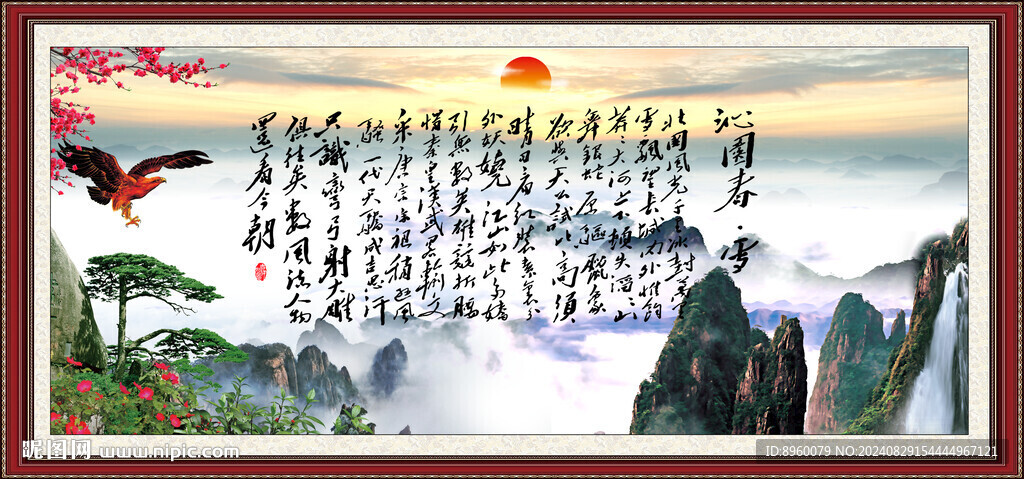 沁園春·雪
北國風光千里冰封萬里
雪飄望長城内外惟餘
莽莽大河上下頓失滔滔山
舞銀蛇原驅臘象
欲與天公試比高須
晴日看紅裝素裹分
外妖嬈江山如此多嬌
引無數英雄競折腰
惜秦皇漢武略輸文
采唐宗宋祖稍遜風
騷一代天驕成吉思汗
只識彎弓射大雕
俱往矣數風流人物
還看今朝
昵图网 www.nipic.com
ID:8960079 NO:20240829154444967121